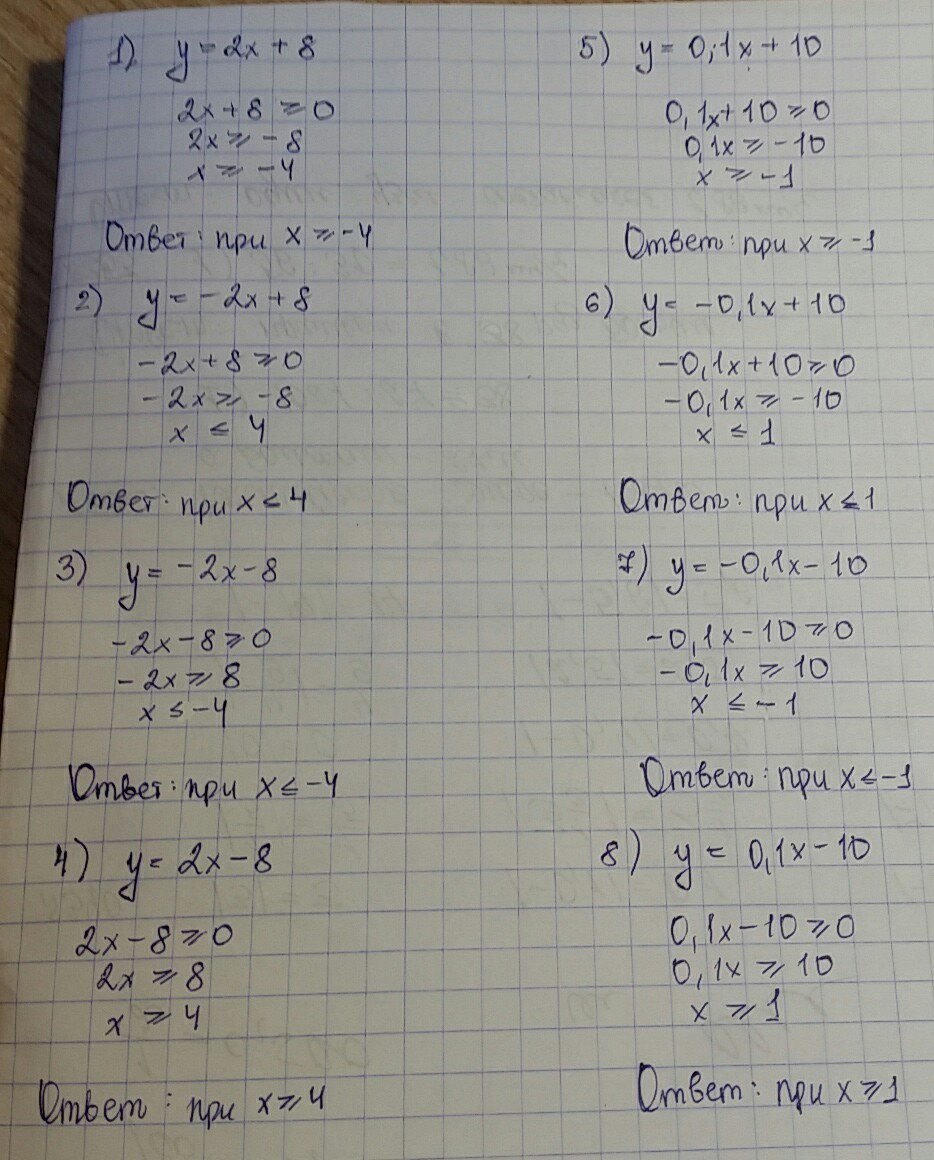 1) y = 2x + 8
2x + 8 ⩾ 0
2x ⩾ -8
x ⩾ -4
Ответ: при x ⩾ -4
2) y = -2x + 8
-2x + 8 ⩾ 0
-2x ⩾ -8
x ≤ 4
Ответ: при x ≤ 4
3) y = -2x - 8
-2x - 8 ⩾ 0
-2x ⩾ 8
x ≤ -4
Ответ: при x ≤ -4
4) y = 2x - 8
2x - 8 ⩾ 0
2x ⩾ 8
x ⩾ 4
Ответ: при x ⩾ 4
5) y = 0,1x + 10
0,1x + 10 ⩾ 0
0,1x ⩾ -10
x ⩾ -1
Ответ: при x ⩾ -1
6) y = -0,1x + 10
-0,1x + 10 ⩾ 0
-0,1x ⩾ -10
x ≤ 1
Ответ: при x ≤ 1
7) y = -0,1x - 10
-0,1x - 10 ⩾ 0
-0,1x ⩾ 10
x ≤ -1
Ответ: при x ≤ -1
8) y = 0,1x - 10
0,1x - 10 ⩾ 0
0,1x ⩾ 10
x ⩾ 1
Ответ: при x ⩾ 1